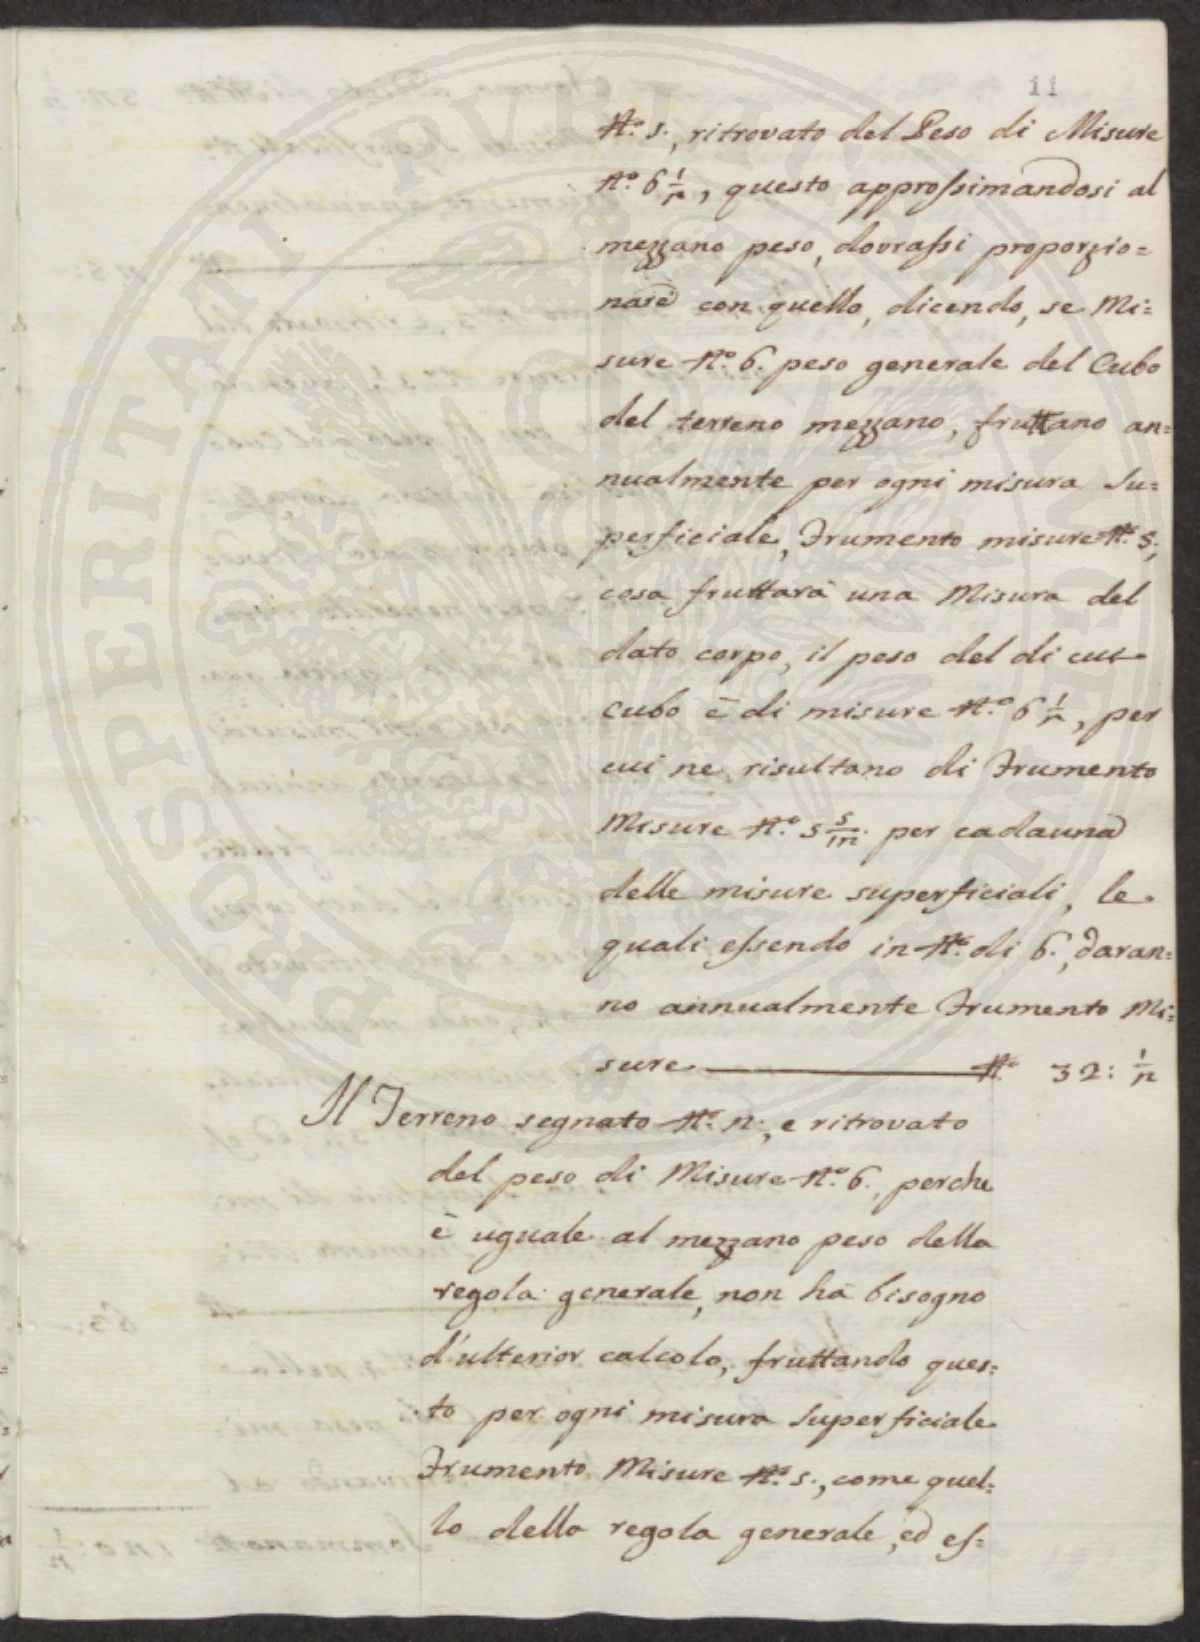 11
N.º 5., ritrovato del Peso di Misure
N.º 6 1/2, questo approssimandosi al
mezzano peso, dovrassi proporzio=
nare con quello, dicendo, se Mi=
sure N.º 6. peso generale del Cubo
del terreno mezzano, fruttano an=
nualmente per ogni misura Su=
perficiale, Frumento misure N.º 5.,
cosa fruttarà una Misura del
dato corpo, il peso del di cui
cubo è di misure N.º 6 1/2, per
cui ne risultano di Frumento
Misure N.º 5 5/12. per cadauna
delle misure superficiali, le
quali essendo in N.º di 6., daran=
no annualmente Frumento Mi=
sure N.º 32: 1/2
Il Terreno segnato N.º 2., e ritrovato
del peso di Misure N.º 6., perche
è uguale al mezzano peso della
regola generale, non hà bisogno
d'ulterior calcolo, fruttando ques=
to per ogni misura Superficiale
Frumento Misure N.º 5., come quel=
lo della regola generale, ed es=
PROSPERITATI PUBLICAE